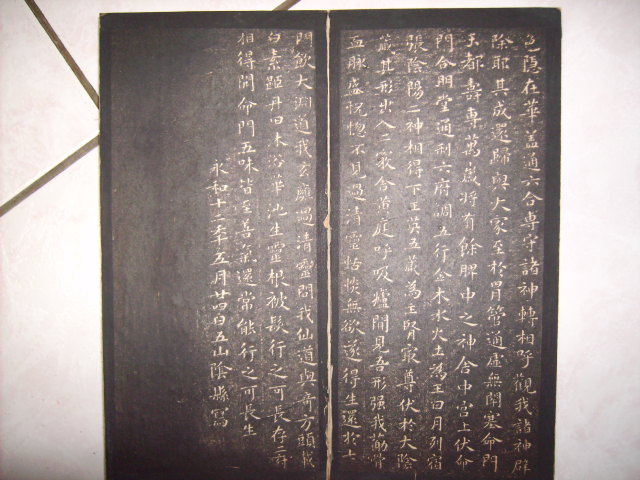 色隱在華蓋通六合專守諸神轉相呼觀我諸神辟
除耶其成還歸與大家至於胃管通虛無閉塞命門
玉都壽專萬歲將有餘脾中之神舍中宮上伏命
門合明堂通利六府調五行金木水火土為王日月列宿
張陰陽二神相得下玉英五藏為主腎最尊伏於大陰
藏其形出入二竅舍黃庭呼吸廬間見吾形强我筋骨
血脉盛怳惚不見過清靈恬惔無欲遂得生還於七
門飲大淵道我玄膺過清靈問我仙道與奇方頭載
白素距丹田沐浴華池生靈根被髮行之可長存二府
相得開命門五味皆至善氣還常能行之可長生
永和十二年五月廿四日五山陰縣寫